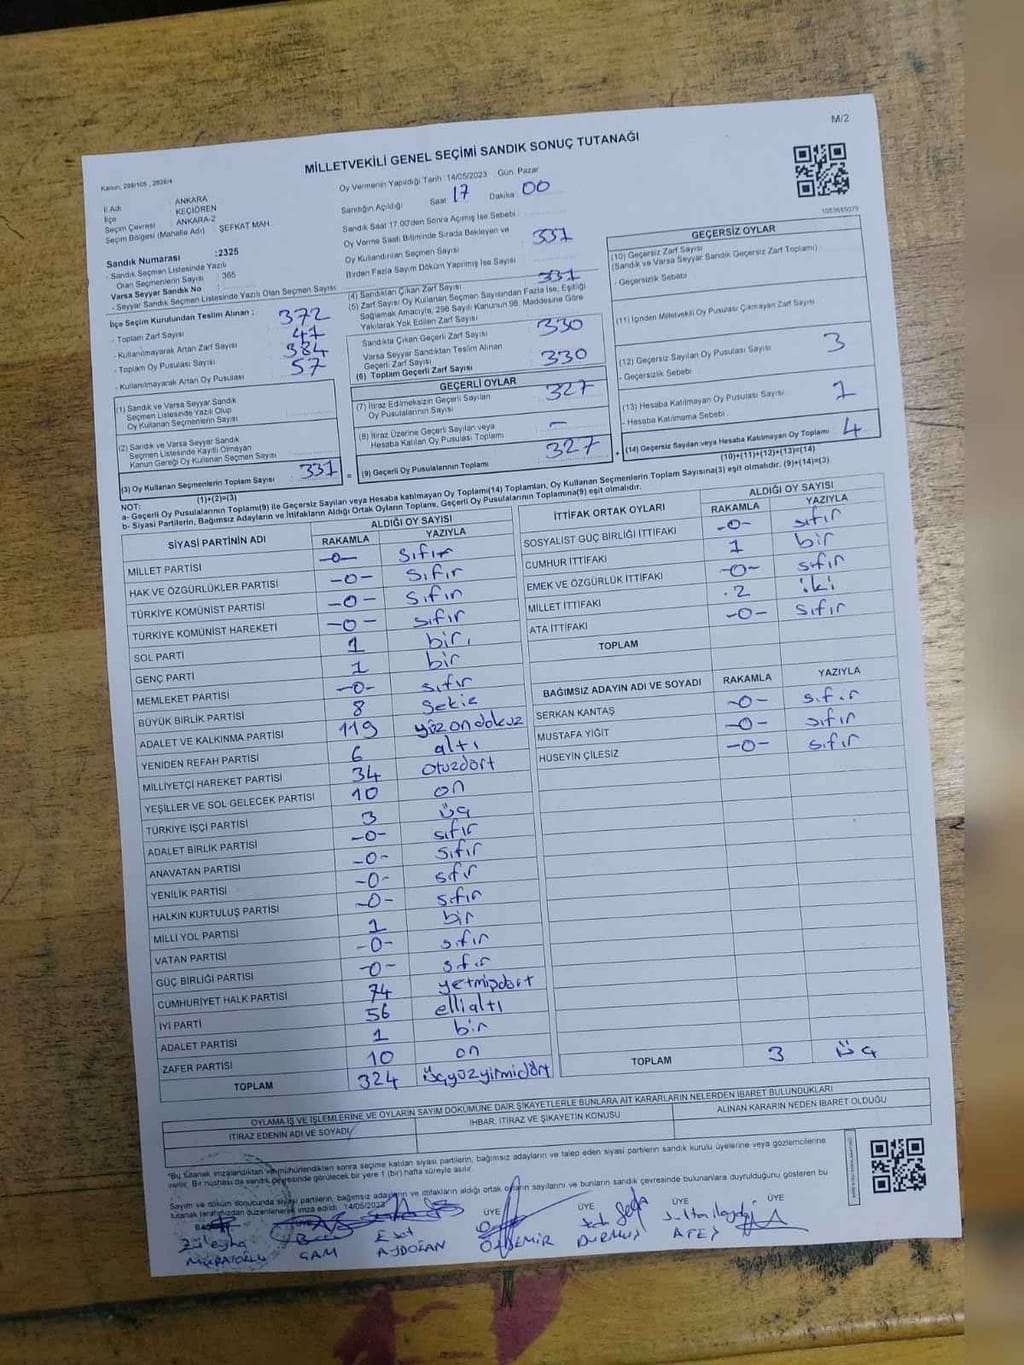 M/2
MİLLETVEKİLİ GENEL SEÇİMİ SANDIK SONUÇ TUTANAĞI
Kanun, 298/105 , 2839/4
Oy Vermenin Yapıldığı Tarih :14/05/2023 Gün: Pazar
İl Adı : ANKARA
İlçe : KEÇİÖREN
Seçim Çevresi : ANKARA-2
Seçim Bölgesi (Mahalle Adı) : ŞEFKAT MAH.
Sandık Numarası :2325
- Sandık Seçmen Listesinde Yazılı
Olan Seçmenlerin Sayısı : 365
Varsa Seyyar Sandık No :
- Seyyar Sandık Seçmen Listesinde Yazılı Olan Seçmen Sayısı:
İlçe Seçim Kurulundan Teslim Alınan :
- Toplam Zarf Sayısı 372
- Kullanılmayarak Artan Zarf Sayısı 41
- Toplam Oy Pusulası Sayısı 384
- Kullanılmayarak Artan Oy Pusulası 57
(1) Sandık ve Varsa Seyyar Sandık
Seçmen Listesinde Yazılı Olup
Oy Kullanan Seçmenlerin Sayısı
(2) Sandık ve Varsa Seyyar Sandık
Seçmen Listesinde Kayıtlı Olmayan
Kanun Gereği Oy Kullanan Seçmen Sayısı
(3) Oy Kullanan Seçmenlerin Toplam Sayısı 331
(1)+(2)=(3)
Sandığın Açıldığı Saat 17 Dakika 00
Sandık Saat 17.00'den Sonra Açılmış İse Sebebi :
Oy Verme Saati Bitiminde Sırada Bekleyen ve
Oy Kullandırılan Seçmen Sayısı 331
Birden Fazla Sayım Döküm Yapılmış İse Sayısı :
(4) Sandıktan Çıkan Zarf Sayısı 331
(5) Zarf Sayısı Oy Kullanan Seçmen Sayısından Fazla İse, Eşitliği
Sağlamak Amacıyla, 298 Sayılı Kanunun 98. Maddesine Göre
Yakılarak Yok Edilen Zarf Sayısı
Sandıkta Çıkan Geçerli Zarf Sayısı 330
Varsa Seyyar Sandıktan Teslim Alınan
Geçerli Zarf Sayısı
(6) Toplam Geçerli Zarf Sayısı 330
GEÇERLİ OYLAR
(7) İtiraz Edilmeksizin Geçerli Sayılan
Oy Pusulalarının Sayısı 327
(8) İtiraz Üzerine Geçerli Sayılan veya
Hesaba Katılan Oy Pusulası Toplamı —
(9) Geçerli Oy Pusulalarının Toplamı 327
1053615079
GEÇERSİZ OYLAR
(10) Geçersiz Zarf Sayısı
(Sandık ve Varsa Seyyar Sandık Geçersiz Zarf Toplamı) :
- Geçersizlik Sebebi
(11) İçinden Milletvekili Oy Pusulası Çıkmayan Zarf Sayısı
(12) Geçersiz Sayılan Oy Pusulası Sayısı 3
- Geçersizlik Sebebi
(13) Hesaba Katılmayan Oy Pusulası Sayısı 1
- Hesaba Katılmama Sebebi :
(14) Geçersiz Sayılan veya Hesaba Katılmayan Oy Toplamı 4
(10)+(11)+(12)+(13)=(14)
NOT:
a- Geçerli Oy Pusulalarının Toplamı(9) ile Geçersiz Sayılan veya Hesaba katılmayan Oy Toplamı(14) Toplamları, Oy Kullanan Seçmenlerin Toplam Sayısına(3) eşit olmalıdır. (9)+(14)=(3)
b- Siyasi Partilerin, Bağımsız Adayların ve İttifakların Aldığı Ortak Oyların Toplamı, Geçerli Oy Pusulalarının Toplamına(9) eşit olmalıdır.
SİYASİ PARTİNİN ADI ALDIĞI OY SAYISI
RAKAMLA YAZIYLA
MİLLET PARTİSİ -0- sıfır
HAK VE ÖZGÜRLÜKLER PARTİSİ -0- sıfır
TÜRKİYE KOMÜNİST PARTİSİ -0- sıfır
TÜRKİYE KOMÜNİST HAREKETİ -0- sıfır
SOL PARTİ 1 bir
GENÇ PARTİ 1 bir
MEMLEKET PARTİSİ -0- sıfır
BÜYÜK BİRLİK PARTİSİ 8 sekiz
ADALET VE KALKINMA PARTİSİ 119 yüzondokuz
YENİDEN REFAH PARTİSİ 6 altı
MİLLİYETÇİ HAREKET PARTİSİ 34 otuzdört
YEŞİLLER VE SOL GELECEK PARTİSİ 10 on
TÜRKİYE İŞÇİ PARTİSİ 3 üç
ADALET BİRLİK PARTİSİ -0- sıfır
ANAVATAN PARTİSİ -0- sıfır
YENİLİK PARTİSİ -0- sıfır
HALKIN KURTULUŞ PARTİSİ -0- sıfır
MİLLİ YOL PARTİSİ 1 bir
VATAN PARTİSİ -0- sıfır
GÜÇ BİRLİĞİ PARTİSİ -0- sıfır
CUMHURİYET HALK PARTİSİ 74 yetmişdört
İYİ PARTİ 56 ellialtı
ADALET PARTİSİ 1 bir
ZAFER PARTİSİ 10 on
TOPLAM 324 üçyüzyirmidört
İTTİFAK ORTAK OYLARI ALDIĞI OY SAYISI
RAKAMLA YAZIYLA
SOSYALİST GÜÇ BİRLİĞİ İTTİFAKI -0- sıfır
CUMHUR İTTİFAKI 1 bir
EMEK VE ÖZGÜRLÜK İTTİFAKI -0- sıfır
MİLLET İTTİFAKI 2 iki
ATA İTTİFAKI -0- sıfır
TOPLAM
BAĞIMSIZ ADAYIN ADI VE SOYADI RAKAMLA YAZIYLA
SERKAN KANTAŞ -0- sıfır
MUSTAFA YİĞİT -0- sıfır
HÜSEYİN ÇİLESİZ -0- sıfır
TOPLAM 3 üç
OYLAMA İŞ VE İŞLEMLERİNE VE OYLARIN SAYIM DÖKÜMÜNE DAİR ŞİKAYETLERLE BUNLARA AİT KARARLARIN NELERDEN İBARET BULUNDUKLARI
İTİRAZ EDENİN ADI VE SOYADI İHBAR, İTİRAZ VE ŞİKAYETİN KONUSU ALINAN KARARIN NEDEN İBARET OLDUĞU
*Bu tutanak imzalandıktan ve mühürlendikten sonra seçime katılan siyasi partilerin, bağımsız adayların ve talep eden siyasi partilerin sandık kurulu üyelerine veya gözlemcilerine
verilir. Bir nüshası da sandık çevresinde görülecek bir yere 1 (bir) hafta süreyle asılır.
Sayım ve döküm sonucunda siyasi partilerin, bağımsız adayların ve ittifakların aldığı ortak oyların sayılarını ve bunların sandık çevresinde bulunanlara duyrulduğunu gösteren bu
tutanak tarafımızdan düzenlenerek imza edildi. 14/05/2023
ÜYE ÜYE ÜYE ÜYE
Züleyha Esat
GAM AJDOĞAN ÖZDEMİR DURMUŞ ATEŞ